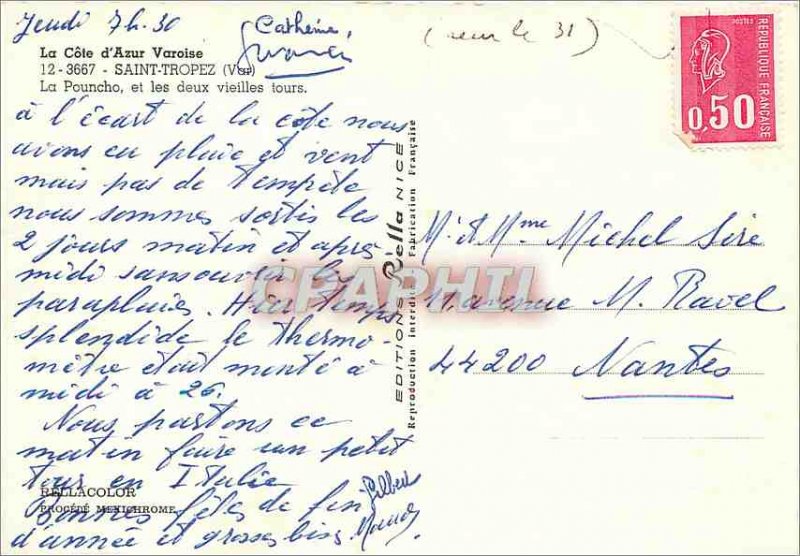 Jeudi 7h.30
Catherine,
(sur le 31)
La Côte d'Azur Varoise
12-3667 - SAINT-TROPEZ (Var)
La Pouncho, et les deux vieilles tours.
à l'écart de la côte nous
avons eu pluie et vent
mais pas de tempête
nous sommes sortis les
2 jours matin et après
midi sans ouvrir les
parapluies. Hier temps
splendide le thermo-
mètre était monté à
midi à 26.
Nous partons ce
matin faire un petit
tour en Italie
RELLACOLOR
PROCÉDÉ MEXICHROME
Bonnes fêtes de fin
d'année et grosses bises
Gilbert
EDITIONS Rella NICE
Reproduction interdite Fabrication Française
POSTES
RÉPUBLIQUE FRANÇAISE
0,50
Mr et Mme Michel Séré
11 avenue M. Ravel
44200
Nantes
CPAPHIL